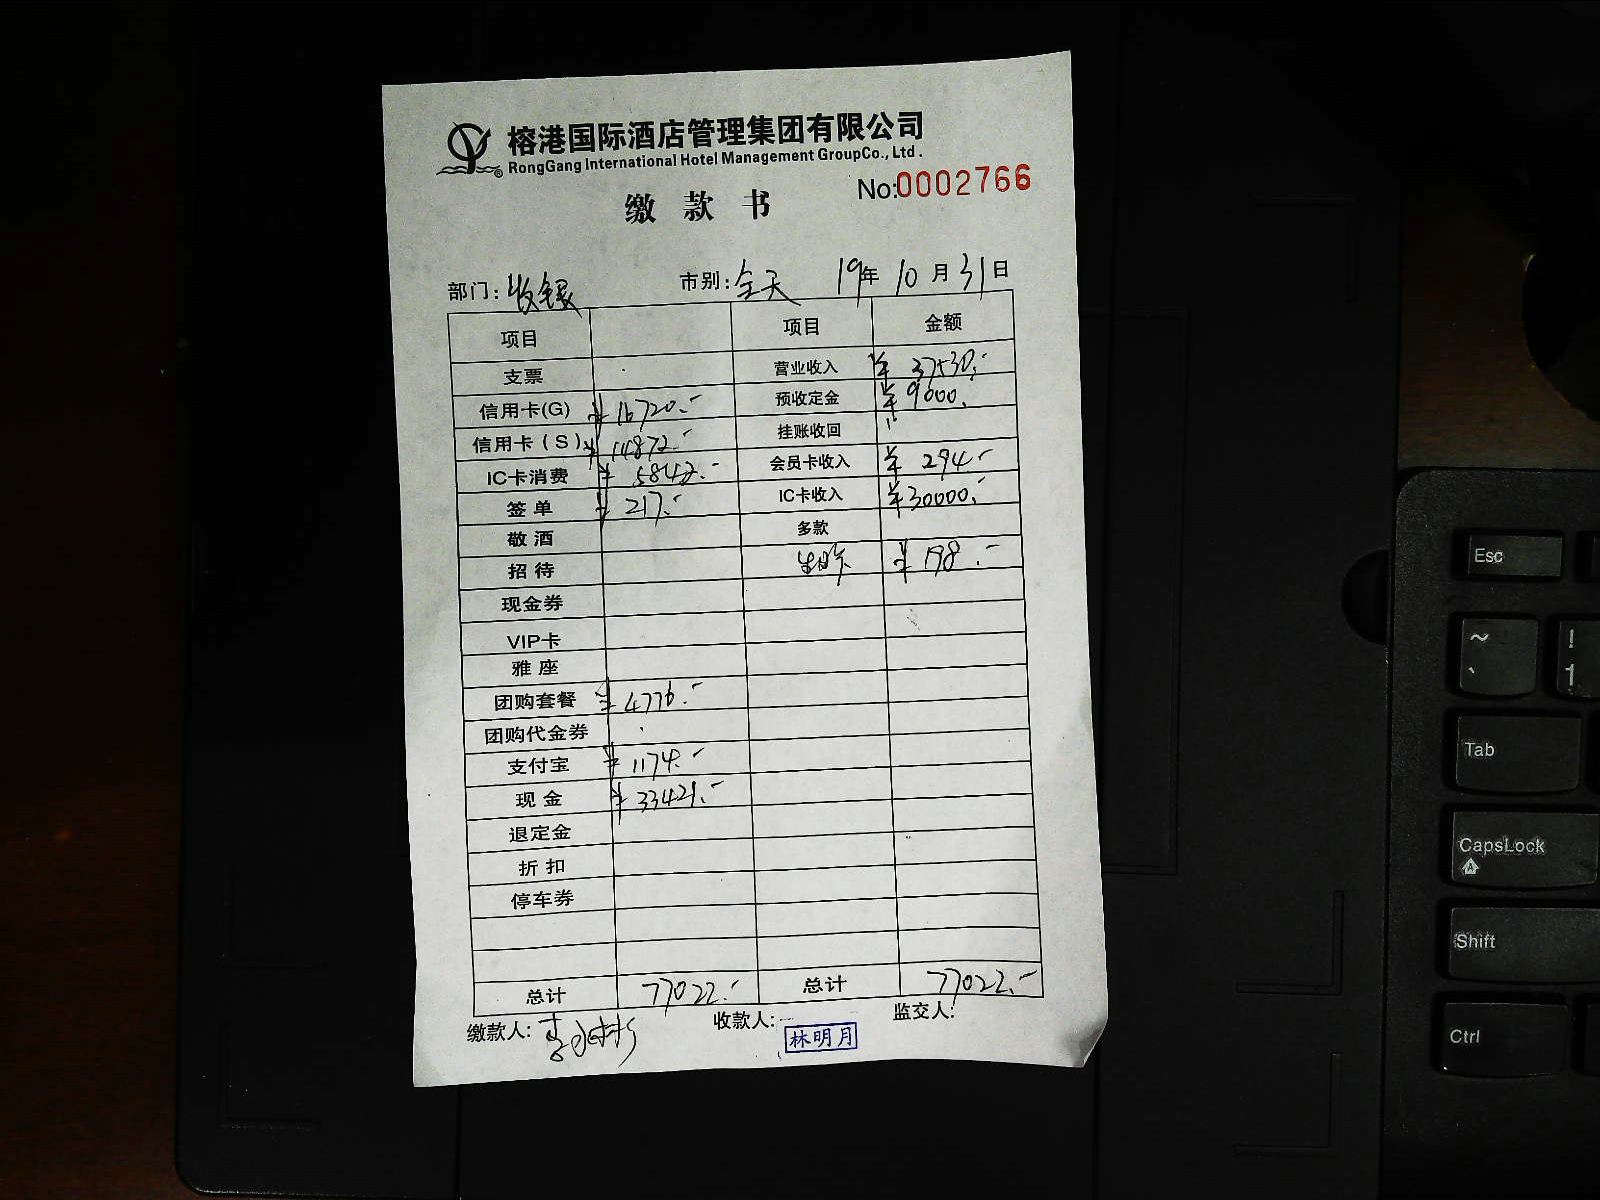 榕港国际酒店管理集团有限公司
RongGang International Hotel Management GroupCo., Ltd.
缴款书 No:0002766
部门: 收银 市别: 全天 19年 10月 31日
项目 项目 金额
支票 营业收入 ¥37530.-
信用卡(G) ¥16720.- 预收定金 ¥9000.
信用卡(S) ¥14872.- 挂账收回
IC卡消费 ¥5842.- 会员卡收入 ¥294.-
签单 ¥217.- IC卡收入 ¥30000.-
敬酒 多款
招待 生日卡 ¥198.-
现金券
VIP卡
雅座
团购套餐 ¥4776.-
团购代金券
支付宝 ¥1174.-
现金 ¥33421.-
退定金
折扣
停车券
总计 77022.- 总计 77022.-
缴款人: 收款人: 林明月 监交人:
Esc
~ ` ! 1
Tab
CapsLock
Shift
Ctrl